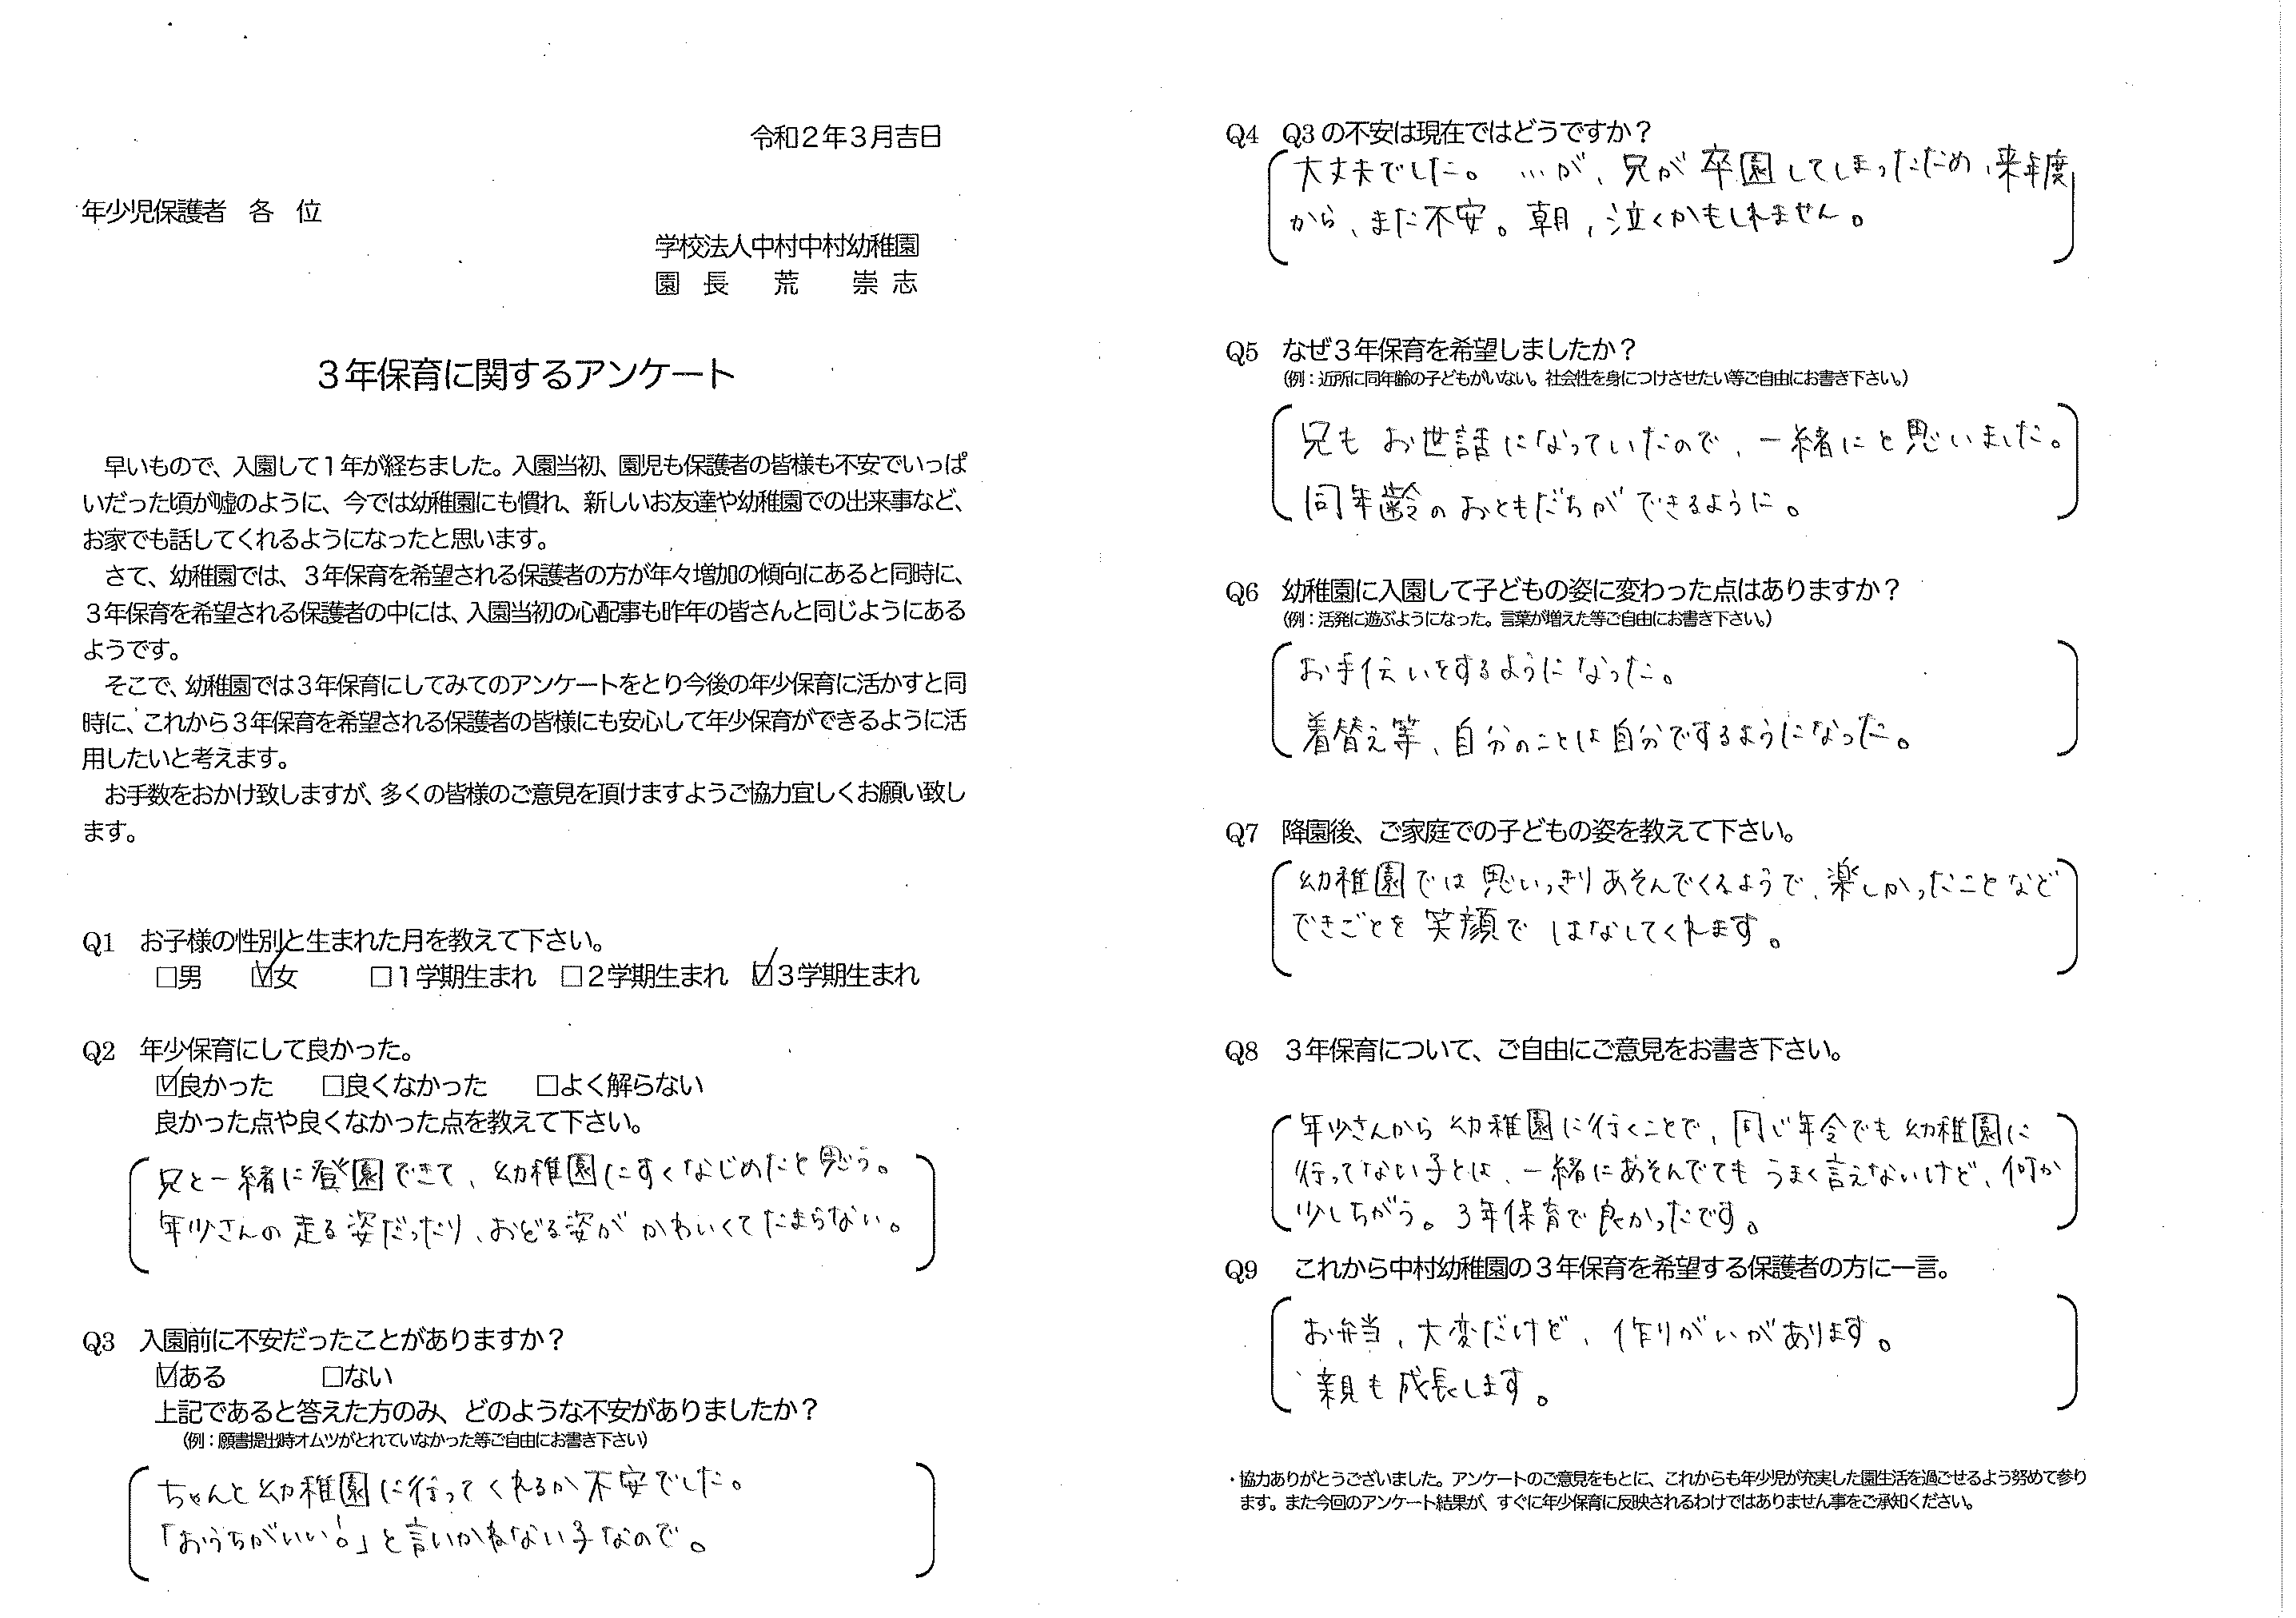 令和２年３月吉日
年少児保護者　各　位
学校法人中村中村幼稚園
園　長　　荒　　崇　志
３年保育に関するアンケート
早いもので、入園して１年が経ちました。入園当初、園児も保護者の皆様も不安でいっぱ
いだった頃が嘘のように、今では幼稚園にも慣れ、新しいお友達や幼稚園での出来事など、
お家でも話してくれるようになったと思います。
さて、幼稚園では、３年保育を希望される保護者の方が年々増加の傾向にあると同時に、
３年保育を希望される保護者の中には、入園当初の心配事も昨年の皆さんと同じようにある
ようです。
そこで、幼稚園では３年保育にしてみてのアンケートをとり今後の年少保育に活かすと同
時に、これから３年保育を希望される保護者の皆様にも安心して年少保育ができるように活
用したいと考えます。
お手数をおかけ致しますが、多くの皆様のご意見を頂けますようご協力宜しくお願い致し
ます。
Q1　お子様の性別と生まれた月を教えて下さい。
□男　☑女　□１学期生まれ　□２学期生まれ　☑３学期生まれ
Q2　年少保育にして良かった。
☑良かった　□良くなかった　□よく解らない
良かった点や良くなかった点を教えて下さい。
兄と一緒に登園できて、幼稚園にすぐなじめたと思う。
年少さんの走る姿だったり、おどる姿がかわいくてたまらない。
Q3　入園前に不安だったことがありますか？
☑ある　□ない
上記であると答えた方のみ、どのような不安がありましたか？
（例：願書提出時オムツがとれていなかった等ご自由にお書き下さい）
ちゃんと幼稚園に行ってくれるか不安でした。
「おうちがいい！。」と言いかねない子なので。
Q4　Q3の不安は現在ではどうですか？
大丈夫でした。…が、兄が卒園してしまったため、来年度
から、また不安。朝、泣くかもしれません。
Q5　なぜ３年保育を希望しましたか？
（例：近所に同年齢の子どもがいない。社会性を身につけさせたい等ご自由にお書き下さい。）
兄もお世話になっていたので、一緒にと思いました。
同年齢のおともだちができるように。
Q6　幼稚園に入園して子どもの姿に変わった点はありますか？
（例：活発に遊ぶようになった。言葉が増えた等ご自由にお書き下さい。）
お手伝いをするようになった。
着替え等、自分のことは自分でするようになった。
Q7　降園後、ご家庭での子どもの姿を教えて下さい。
幼稚園では思いっきりあそんでくるようで、楽しかったことなど
できごとを笑顔ではなしてくれます。
Q8　３年保育について、ご自由にご意見をお書き下さい。
年少さんから幼稚園に行くことで、同じ年令でも幼稚園に
行ってない子とは、一緒にあそんでてもうまく言えないけど、何か
少しちがう。３年保育で良かったです。
Q9　これから中村幼稚園の３年保育を希望する保護者の方に一言。
お弁当、大変だけど、作りがいがあります。
親も成長します。
・協力ありがとうございました。アンケートのご意見をもとに、これからも年少児が充実した園生活を過ごせるよう努めて参り
ます。また今回のアンケート結果が、すぐに年少保育に反映されるわけではありません事をご承知ください。